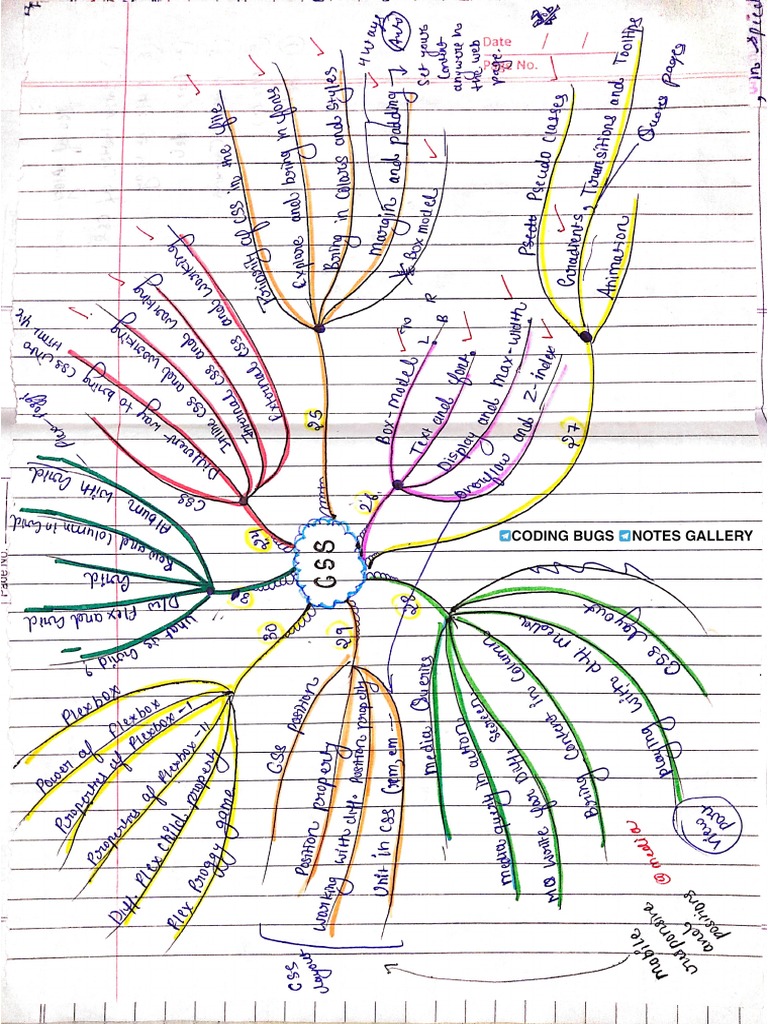 CSS
24
CSS
Different way to bring CSS into HTML
Inline CSS and working
Internal CSS and working
External CSS and working
25
Benefit of CSS in the file
Explore and bring in fonts
Bring in colors and styles
Margin and padding
4 ways
Auto
Set your
content
anywhere in
the web
page.
Box model
Date / /
Page No.
26
Box-Model
L R
B
Text and font
Display and max-width
Overflow and Z-index
27
Pseudo Classes
Gradients, Transitions and Tooltips
Quotes Pages
Animation
CODING BUGS NOTES GALLERY
28
CSS layout
Playing with diff media
View
port
@media
Bring Content in Column
MQ write for Diff. screen
Media query in action
Media Queries
Mobile
responsive
and
positions
29
CSS Position
Position property
Working with diff. Position property
Unit in CSS (rem, em
CSS
layout
30
Flexbox
Power of Flexbox
Properties of Flexbox-I
Properties of Flexbox-II
Diff. Flex child property
Flex Froggy game
What is Grid?
D/W Flex and Grid
Grid
Row and Column in Grid
Album with Grid
Page No.